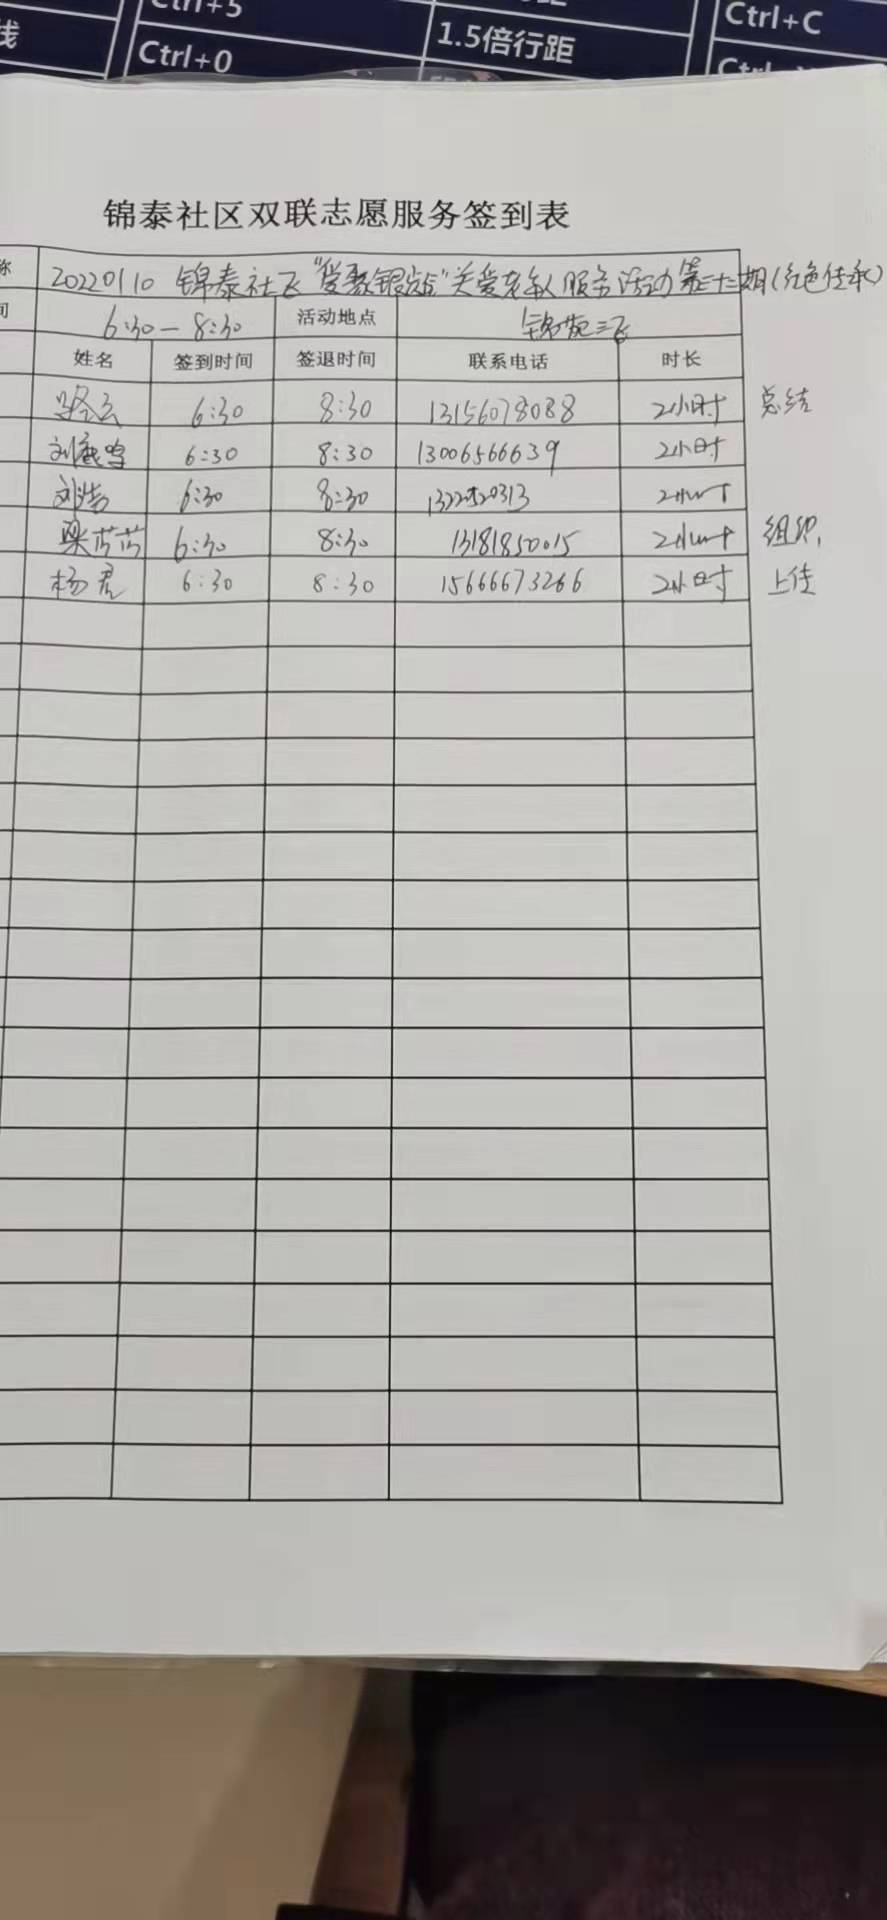 线 Ctrl+5 Ctrl+C
Ctrl+0 1.5倍行距
锦泰社区双联志愿服务签到表
称 20220110 锦泰社区"爱聚银龄"关爱老人服务活动第二十期(红色传承)
间 6:30-8:30 活动地点 锦苑三区
姓名 签到时间 签退时间 联系电话 时长
6:30 8:30 13156078088 2小时 总结
刘鹿鸣 6:30 8:30 13006566639 2小时
刘浩 6:30 8:30 2小时
梁芳芳 6:30 8:30 13181850015 2小时 组织,
杨君 6:30 8:30 15666673266 2小时 上传